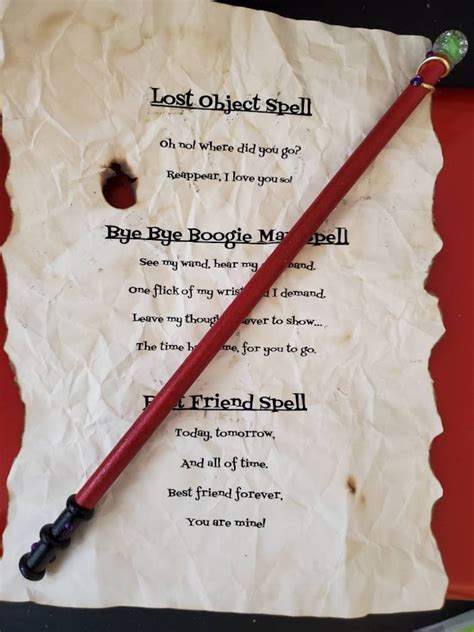 Lost Object Spell
Oh no! Where did you go?
Reappear, I love you so!
Bye Bye Boogie Man Spell
See my wand, hear my command.
One flick of my wrist and I demand.
Leave my thoughts never to show...
The time has come, for you to go.
Best Friend Spell
Today, tomorrow,
And all of time.
Best friend forever,
You are mine!